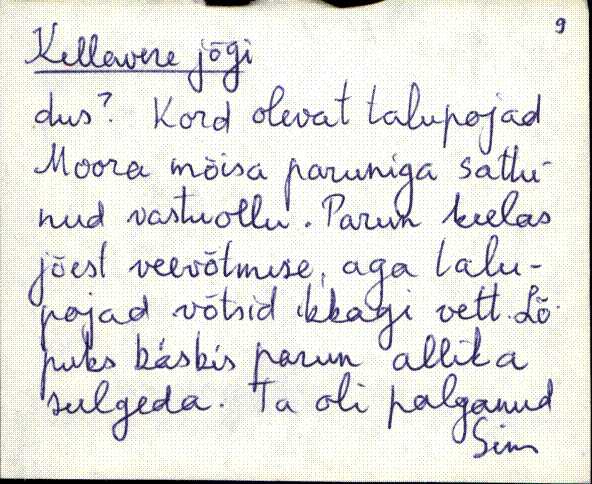 9
Kellavere jõgi
dus? Kord olevat talupojad
Moora mõisa paruniga sattu-
nud vastuollu. Parun keelas
jõest veevõtmise, aga talu-
pojad võtsid ikkagi vett. Lõ-
puks käskis parun allika
sulgeda. Ta oli palganud
Sim